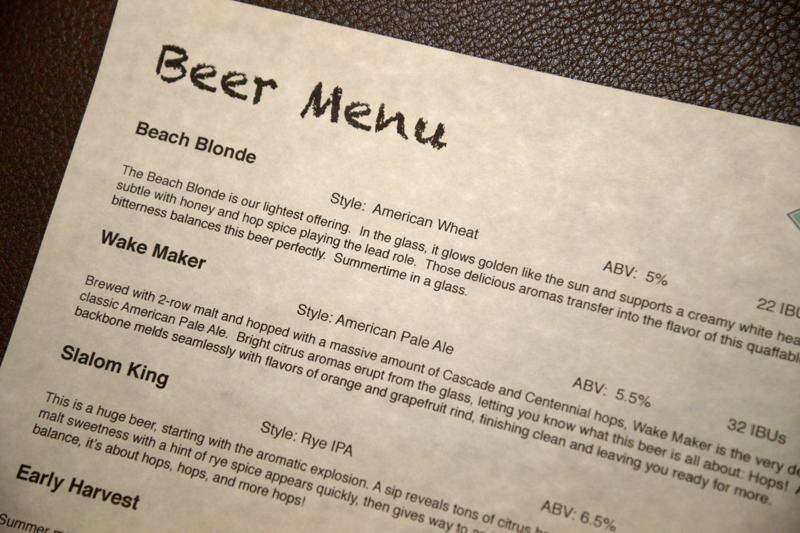 Beer Menu
Beach Blonde
Style: American Wheat
ABV: 5%
22
The Beach Blonde is our lightest offering. In the glass, it glows golden like the sun and supports a creamy white
subtle with honey and hop spice playing the lead role. Those delicious aromas transfer into the flavor of this
bitterness balances this beer perfectly. Summertime in a glass.
Wake Maker
Style: American Pale Ale
ABV: 5.5%
32 IBUs
Brewed with 2-row malt and hopped with a massive amount of Cascade and Centennial hops, Wake Maker is the very
classic American Pale Ale. Bright citrus aromas erupt from the glass, letting you know what this beer is all about: Hops!
backbone melds seamlessly with flavors of orange and grapefruit rind, finishing clean and leaving you ready for more.
Slalom King
Style: Rye IPA
ABV: 6.5%
This is a huge beer, starting with the aromatic explosion. A sip reveals tons of citrus
malt sweetness with a hint of rye spice appears quickly, then gives way to
balance, it's about hops, hops, and more hops!
Early Harvest
Summer